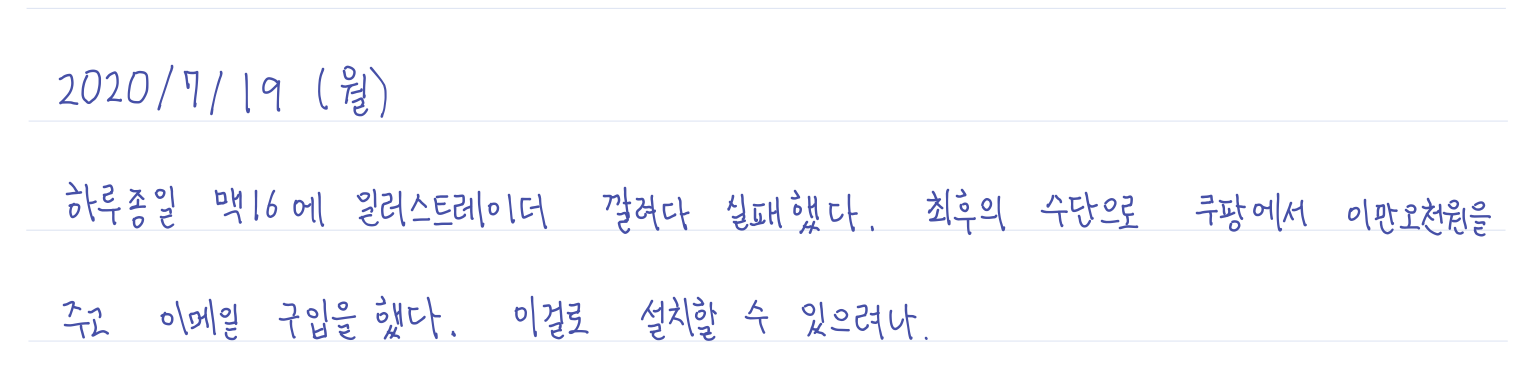 2020/7/19 (월)
하루종일 맥16에 일러스트레이더 깔려다 실패했다. 최후의 수단으로 쿠팡에서 이만오천원을
주고 이메일 구입을 했다. 이걸로 설치할 수 있으려나.